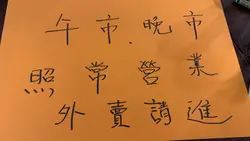 午市.晚市
照常營業
外賣請進